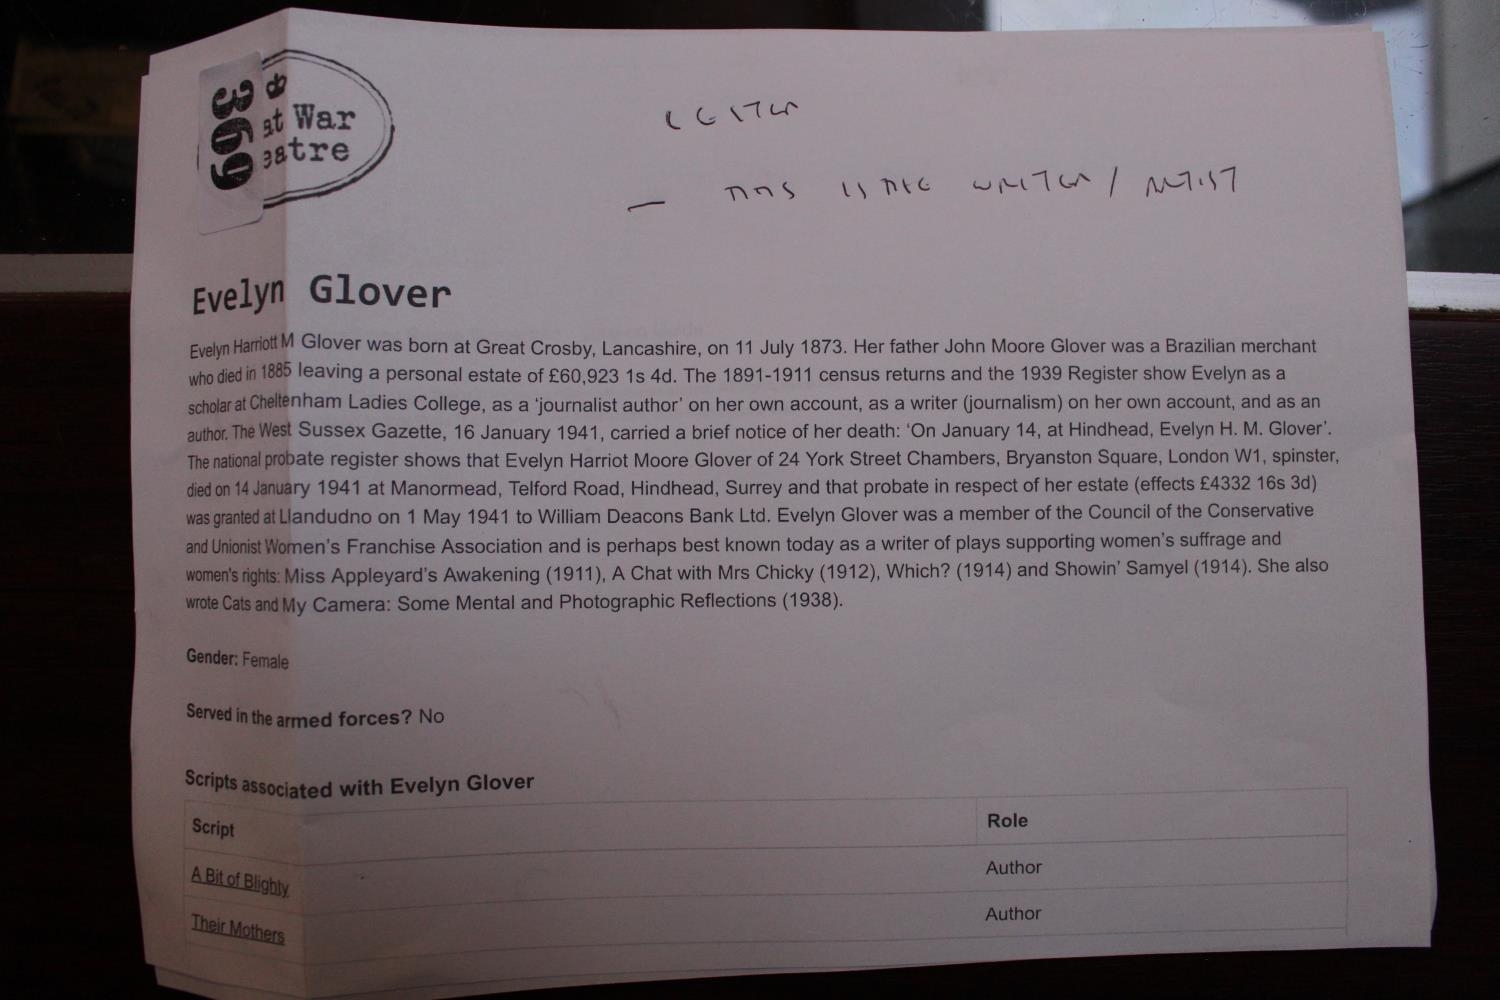 369
at War
eatre
THIS IS THE WRITER / ARTIST
Evelyn Glover
Evelyn Harriott M Glover was born at Great Crosby, Lancashire, on 11 July 1873. Her father John Moore Glover was a Brazilian merchant
who died in 1885 leaving a personal estate of £60,923 1s 4d. The 1891-1911 census returns and the 1939 Register show Evelyn as a
scholar at Cheltenham Ladies College, as a ‘journalist author’ on her own account, as a writer (journalism) on her own account, and as an
author. The West Sussex Gazette, 16 January 1941, carried a brief notice of her death: ‘On January 14, at Hindhead, Evelyn H. M. Glover’.
The national probate register shows that Evelyn Harriot Moore Glover of 24 York Street Chambers, Bryanston Square, London W1, spinster,
died on 14 January 1941 at Manormead, Telford Road, Hindhead, Surrey and that probate in respect of her estate (effects £4332 16s 3d)
was granted at Llandudno on 1 May 1941 to William Deacons Bank Ltd. Evelyn Glover was a member of the Council of the Conservative
and Unionist Women’s Franchise Association and is perhaps best known today as a writer of plays supporting women’s suffrage and
women's rights: Miss Appleyard’s Awakening (1911), A Chat with Mrs Chicky (1912), Which? (1914) and Showin’ Samyel (1914). She also
wrote Cats and My Camera: Some Mental and Photographic Reflections (1938).
Gender: Female
Served in the armed forces? No
Scripts associated with Evelyn Glover
Script Role
A Bit of Blighty Author
Their Mothers Author